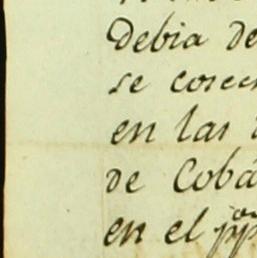 Debia de
se cosec
en las
de Cobá
en el